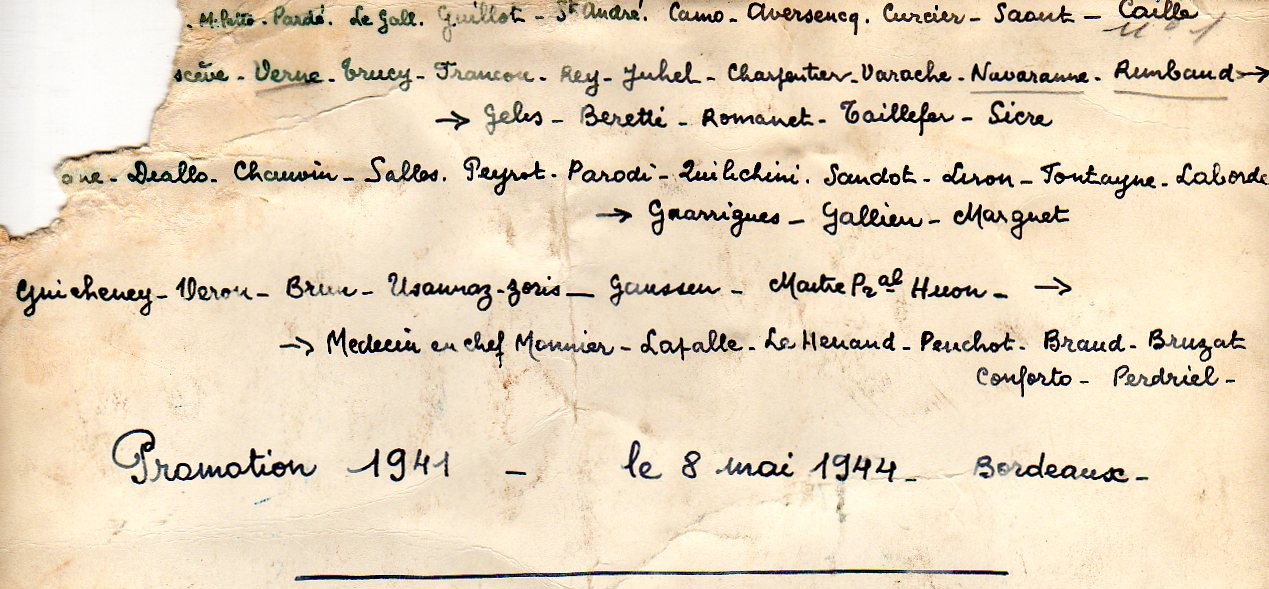 M. Petto - Pardé. Le Gall. Guillot - St André. Camo - Aversencq. Curcier - Saout - Caille
scève - Verne - Trucy - Francou - Rey - Juhel - Charpentier - Varache - Navaranne - Rimbaud →
→ Gelis - Beretti - Romanet - Taillefer - Sicre
ane - Deallo. Chauvin - Salles. Peyrot. Parodi - Quilichini. Sandot - Liron - Fontayne - Laborde
→ Guarrigues - Gallieu - Marguet
Guicheney - Veron - Brun - Usannaz-Joris - Gaussen - Maitre Pral Huon - →
→ Medecin en chef Monnier - Lapalle - Le Henand - Penchot - Braud - Bruzat
Conforto - Perdriel -
Promotion 1941 - le 8 mai 1944 - Bordeaux -